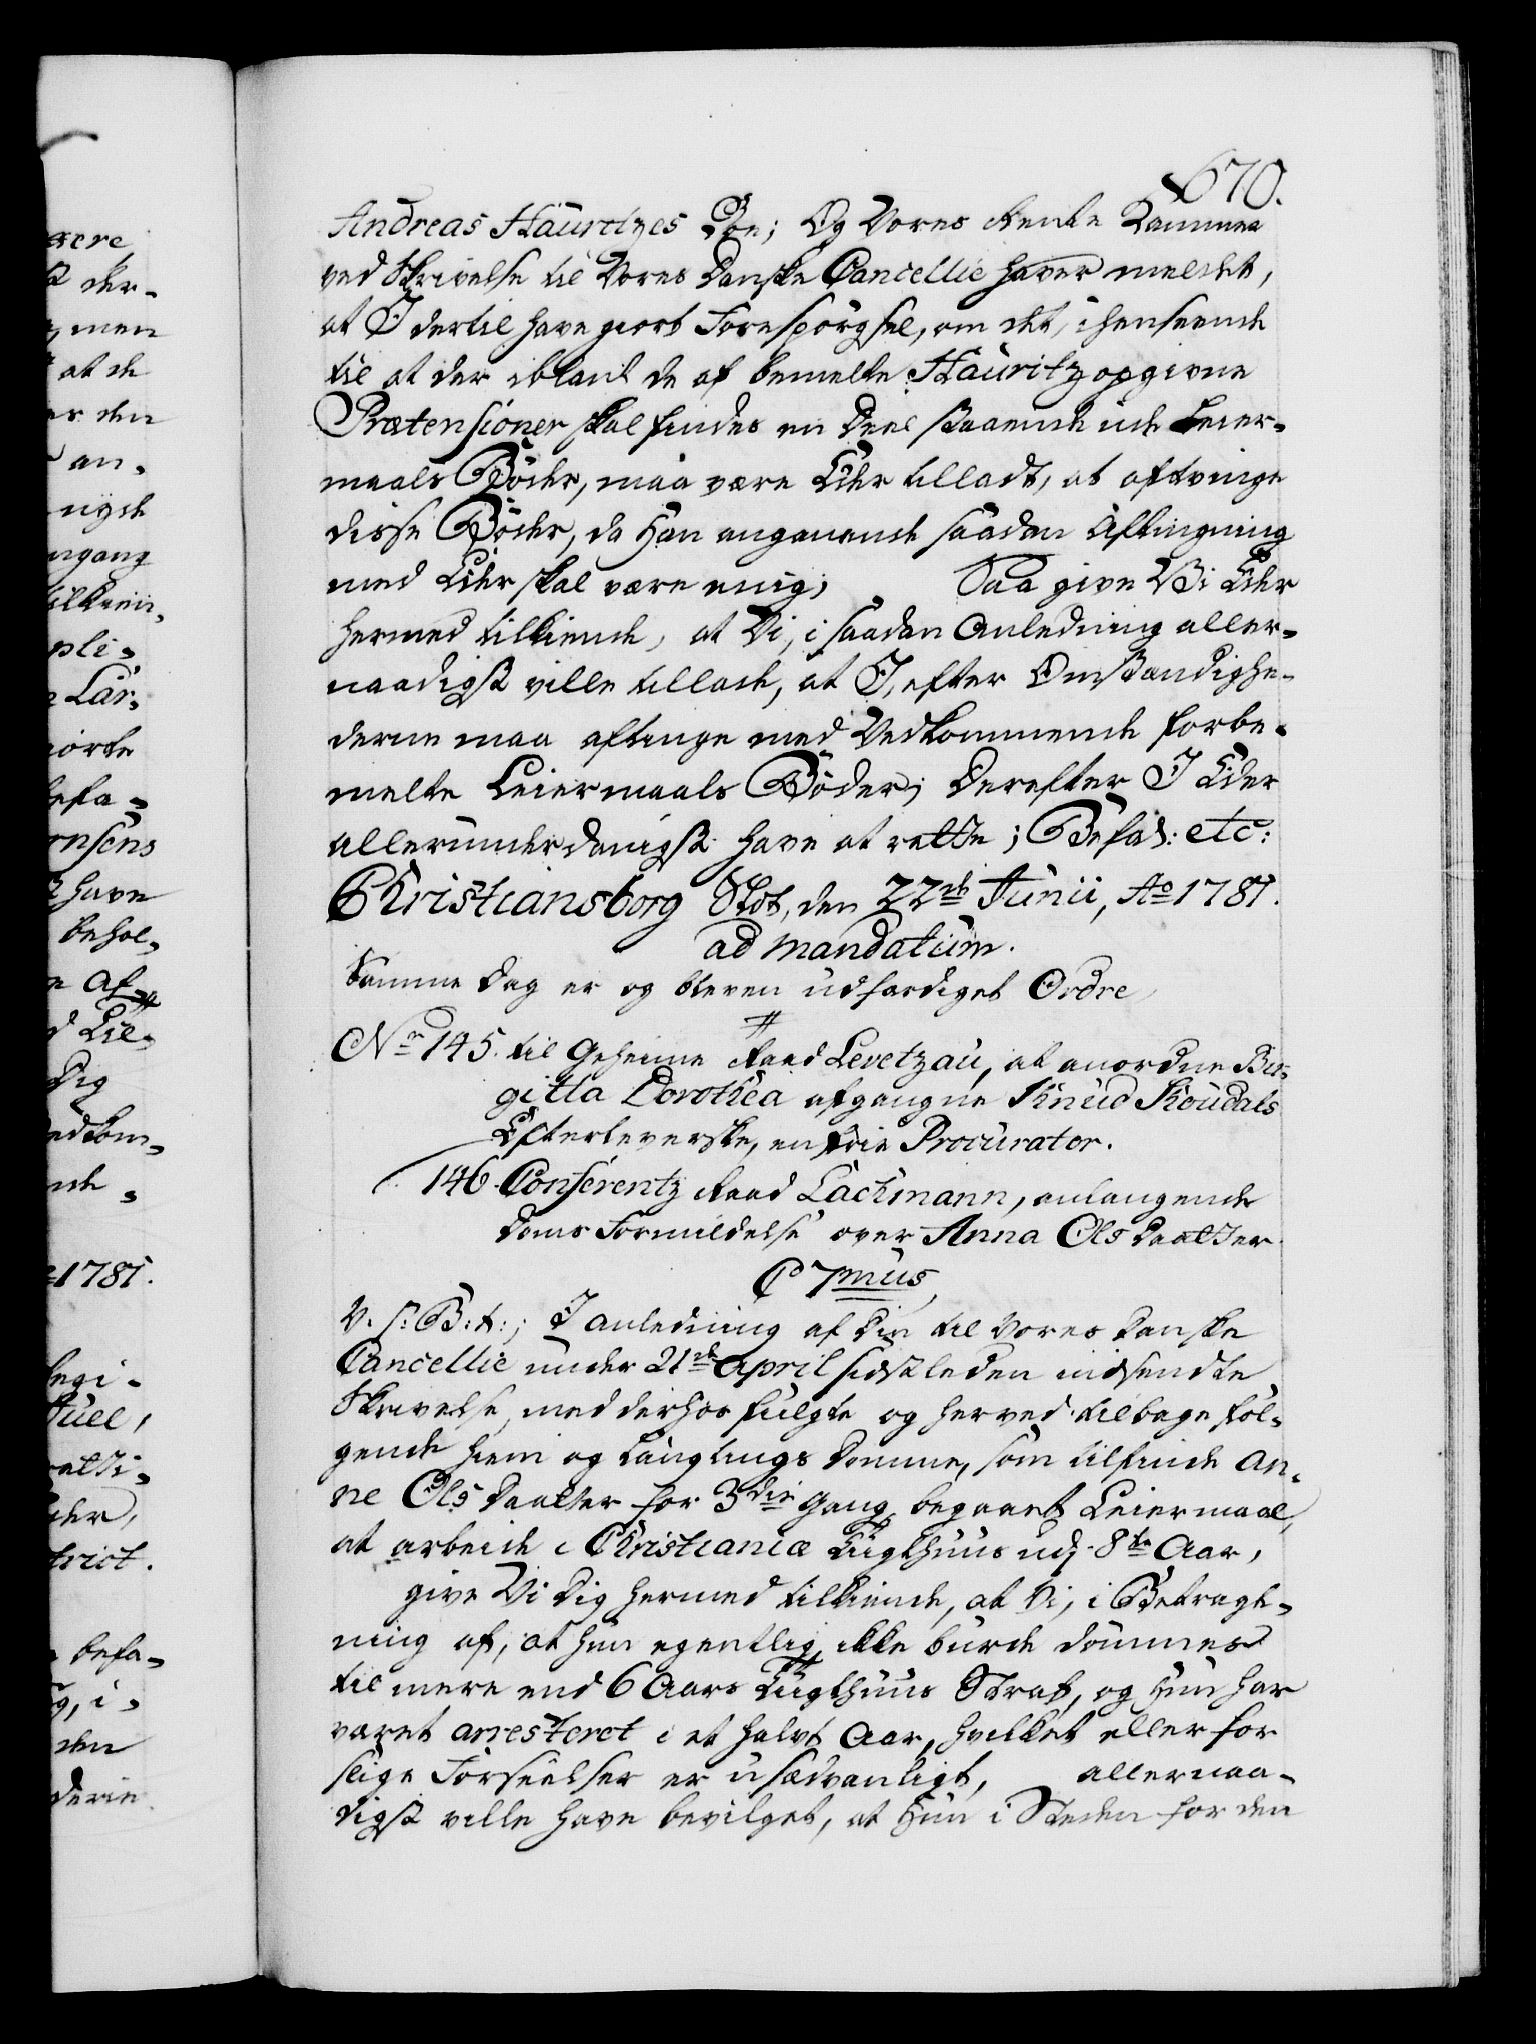 670.
Andreas Hauritzes Boe; Og Vores Rente Kammer
ved Skrivelse til Vores Danske Cancellie haver meldet,
at I dertil have giort Forespörgsel, om det, i henseende
til at der iblant de af bemelte Hauritz opgivne
Prætensioner skal findes en Deel staaende ude Leier-
maals Böder, maa være Eder tilladt, at aftvinge
disse Böder, da han angaaende saadan Aftingning
med Eder skal være enig; Saa give Vi Eder
hermed tilkiende, at Vi, i saadan Anledning aller-
naadigst ville tillade, at I, efter Omstændighe-
derne maa aftinge med Vedkommende forbe-
melte Leiermaals Böder; Derefter I Eder
allerunderdanigst have at rette; Befal: etc:
Christiansborg Slot, den 22de Junii, Ao 1781.
ad mandatum.
Samme Dag er og bleven udfærdiget Ordre
Nr 145. til Geheime Raad Levetzau, at anordne Bir-
gitta Dorothea afgangne Knud Koudals
Efterleverske, en frie Procurator.
146. Conferentz Raad Lachmann, anlangende
Doms Formildelse over Anna Ols Daatter.
C 7mus,
V. S: B: t:; I Anledning af Din til Vores Danske
Cancellie under 21de April sidstleden indsendte
Skrivelse, med derhos fulgte og herved tilbage föl-
gende Hiem og Laugtings Domme, som tilfinde An-
ne Ols Daatter for 3die Gang begaaet Leiermaal,
at arbeide i Christianiæ Tugthuus udj 8te Aar,
give Vi Dig hermed tilkiende, at Vi, i Betragt-
ning af, at hun egentlig ikke burde dömmes
til mere end 6 Aars Tugthuus Straf, og hun har
været arresteret i et halvt Aar, hvilket eller for
slige Forseelser er usædvanligt, allernaa-
digst ville have bevilget, at hun i Steden for den